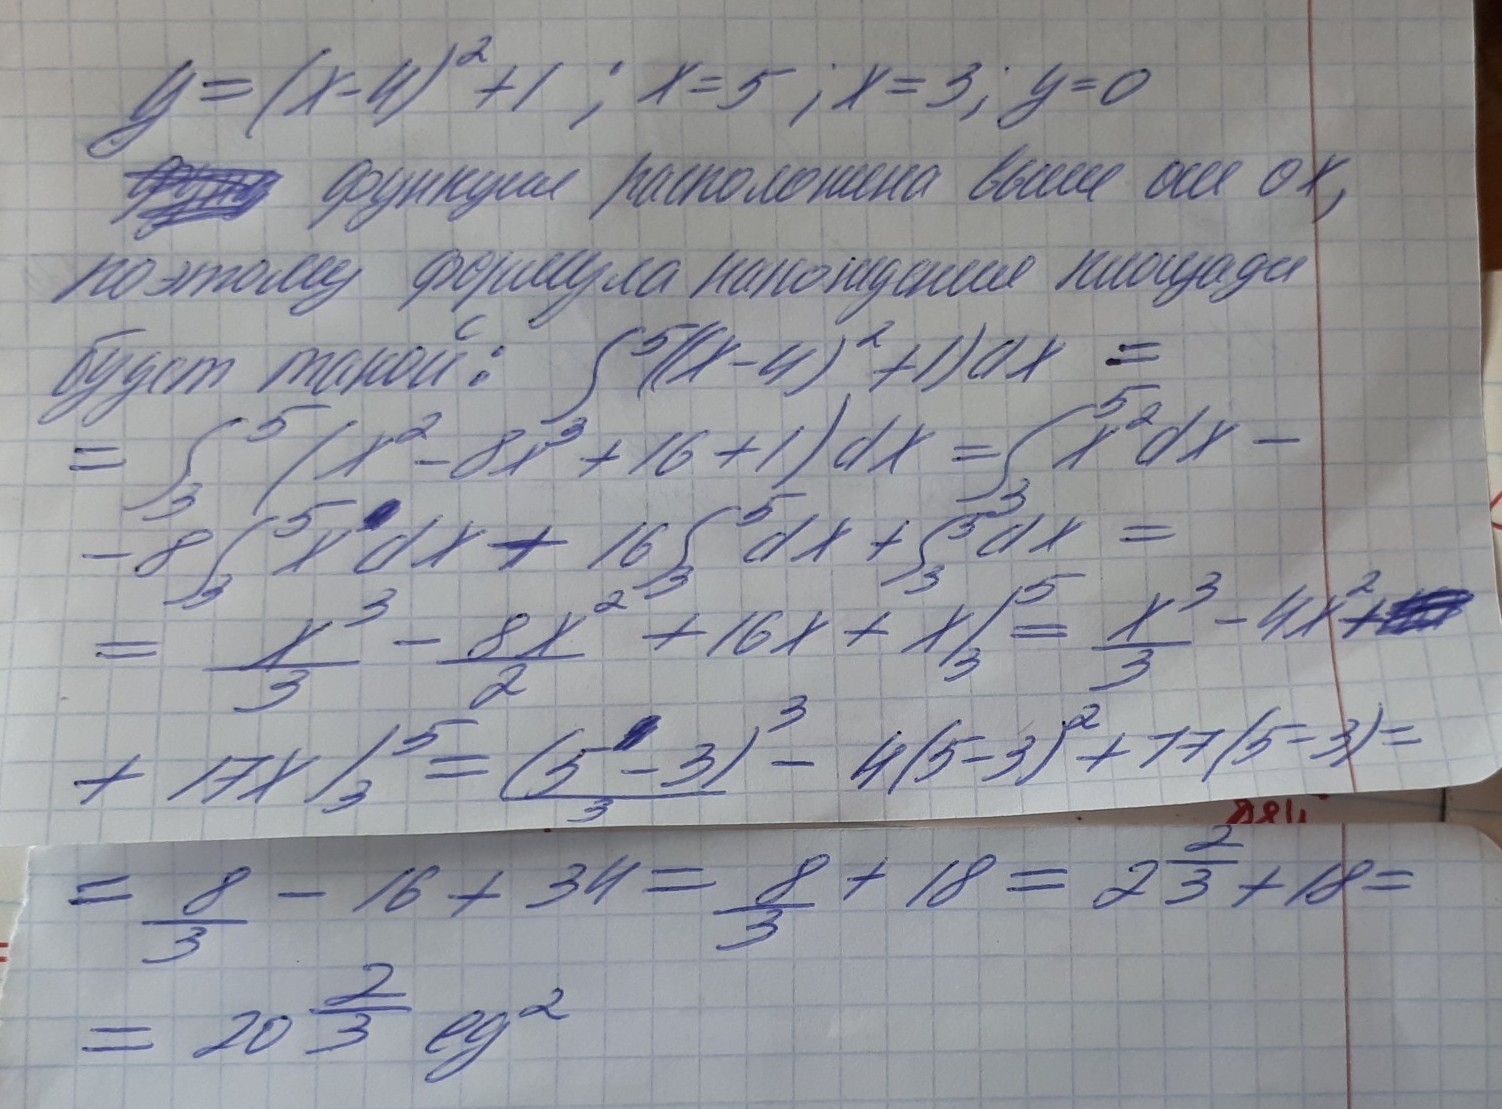 y=(x-4)²+1; x=5; x=3; y=0
функция расположена выше оси ох,
поэтому формула нахождения площади
будет такой: ∫₃⁵((x-4)²+1)dx =
= ∫₃⁵(x²-8x+16+1)dx = ∫₃⁵x²dx -
- 8∫₃⁵x dx + 16∫₃⁵dx + ∫₃⁵dx =
= x³/3 - 8x²/2 + 16x + x|₃⁵ = x³/3 - 4x² +
+ 17x|₃⁵ = (5-3)³/3 - 4(5-3)² + 17(5-3) =
= 8/3 - 16 + 34 = 8/3 + 18 = 2 2/3 + 18 =
= 20 2/3 ед²